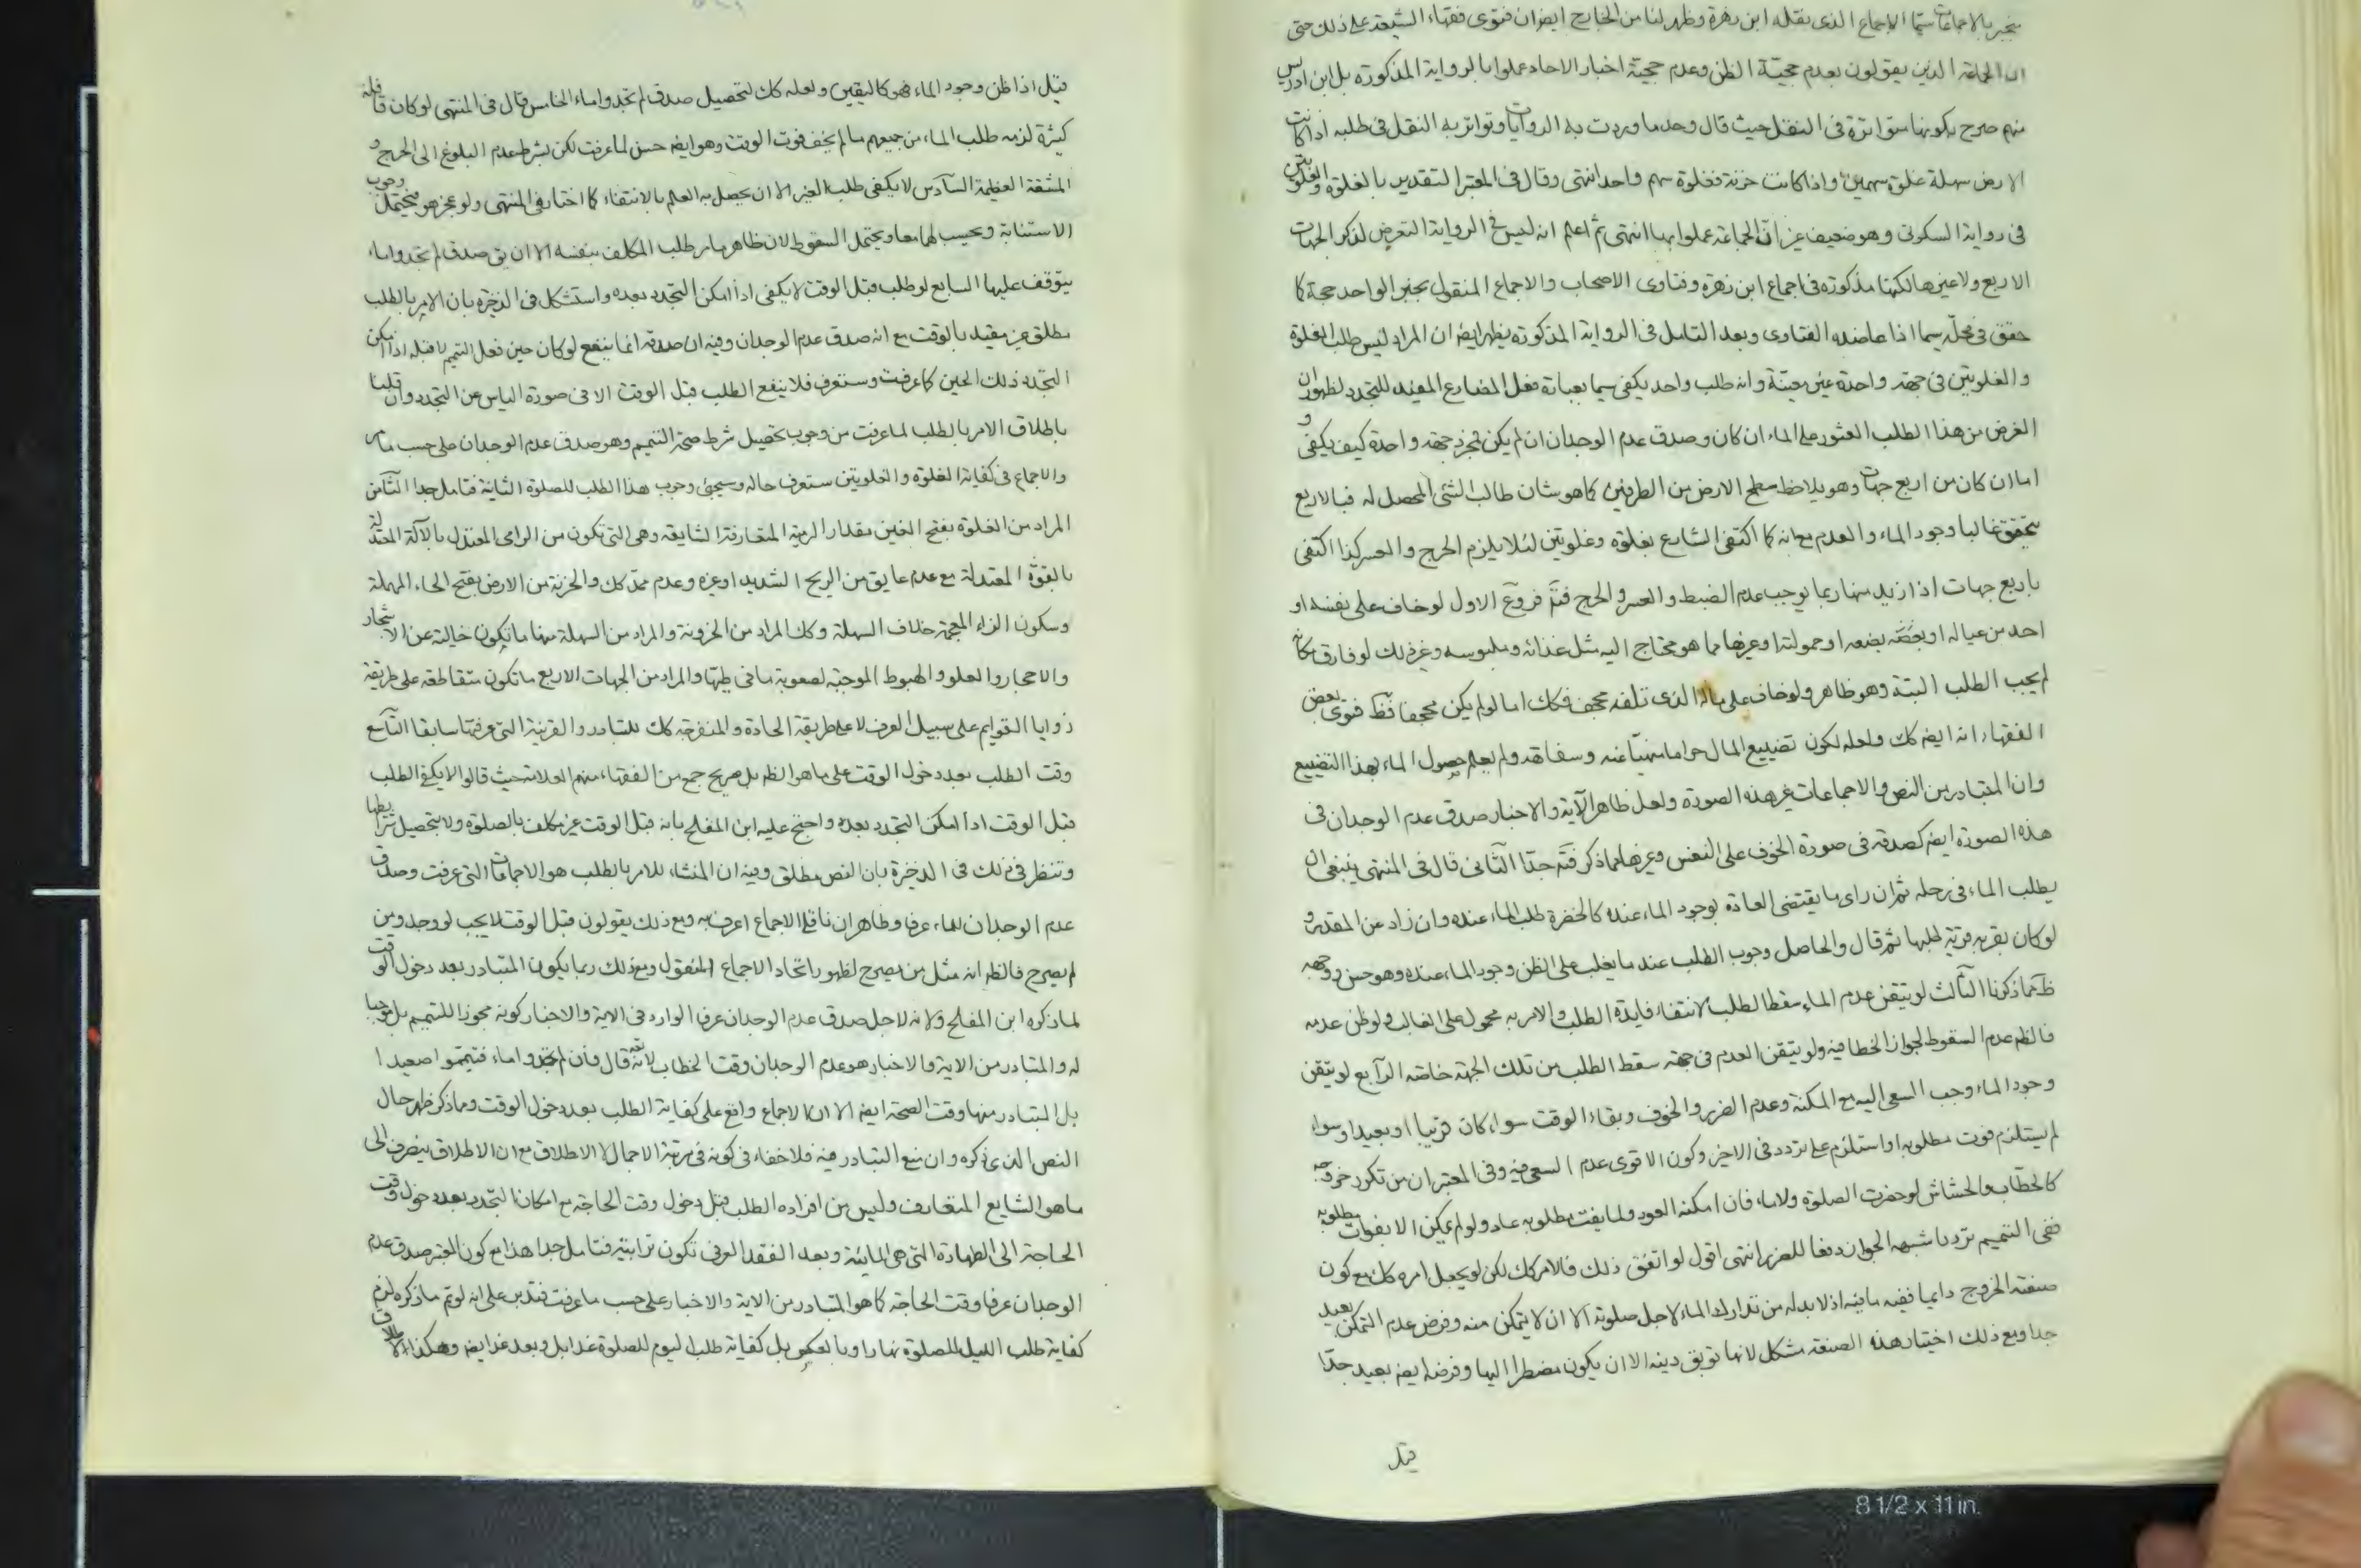 ينجبر بالاجماعات سيما الاجماع الذى نقله ابن زهرة وظهر لنا من الخارج ايضا ان فتوى فقهاء الشيعة على ذلك حتى
ان الجماعة الذين يقولون بعدم حجية الظن وعدم حجية اخبار الاحاد عملوا بالرواية المذكورة بل ابن ادريس
منهم صرح بكونها متواترة فى النقل حيث قال وحد ما وردت به الروايات وتواتر به النقل فى طلبه اذا كانت
الارض سهلة غلوة سهمين واذا كانت حزنة فغلوة سهم واحد انتهى وقال فى المعتبر التقدير بالغلوة والغلوتين
فى رواية السكونى وهو ضعيف غير ان الجماعة عملوا بها انتهى ثم اعلم انه ليس فى الرواية التعرض لذكر الجهات
الاربع ولا غيرها لكنها مذكورة فى اجماع ابن زهرة وفتاوى الاصحاب والاجماع المنقول بخبر الواحد حجة كما
حقق فى محله سيما اذا عاضده الفتاوى وبعد التامل فى الرواية المذكورة يظهر ايضا ان المراد ليس طلب الغلوة
والغلوتين فى جهة واحدة غير معينة وانه طلب واحد يكفى سيما بعبارة فعل المضارع المفيد للتجدد لظهور ان
الغرض من هذا الطلب العثور على الماء ان كان وصدق عدم الوجدان ان لم يكن فبجهة واحدة كيف يكفى و
اما ان كان من اربع جهات وهو يلاحظ سطح الارض من الطرفين كما هو شان طالب الشئ المحصل له فبالاربع
يتحقق غالبا وجود الماء والعدم مع انه كما اكتفى الشارع بغلوة وغلوتين لئلا يلزم الحرج والعسر كذا اكتفى
باربع جهات اذ ازيد منها ربما يوجب عدم الضبط والعسر والحرج فتم فروع الاول لو خاف على نفسه او
احد من عياله او بضعه او حمولته او غيرها مما هو محتاج اليه مثل غذائه وملبوسه وغير ذلك لو فارق مكانه
لم يجب الطلب البتة وهو ظاهر ولو خاف على ماله الذى تلفه مجحف فكك اما لو لم يكن مجحفا فظ فتوى بعض
الفقهاء انه ايضا كك ولعله لكون تضييع المال حراما منهيا عنه وسفاهة ولم يعلم حصول الماء بهذا التضييع
وان المتبادر من النص والاجماعات غير هذه الصورة ولعل ظاهر الآية والاخبار صدق عدم الوجدان فى
هذه الصورة ايضا كصدقه فى صورة الخوف على النفس وغيرها مما ذكر فتم جدا الثانى قال فى المنتهى ينبغى ان
يطلب الماء فى رحله ثم ان راى ما يقتضى العادة بوجود الماء عنده كالخضرة طلب الماء عنده وان زاد عن المقدر و
لو كان بقربه قرية طلبها ثم قال والحاصل وجوب الطلب عند ما يغلب على الظن وجود الماء عنده وهو حسن ووجهه
ظ مما ذكرنا الثالث لو تيقن عدم الماء سقط الطلب لانتفاء فايدة الطلب والامر به محمول على الغالب ولو ظن عدمه
فالظم عدم السقوط لجواز الخطا فيه ولو تيقن العدم فى جهة سقط الطلب من تلك الجهة خاصة الرابع لو تيقن
وجود الماء وجب السعى اليه مع المكنة وعدم الضرر والخوف وبقاء الوقت سواء كان قريبا او بعيدا وسواء
لم يستلزم فوت مطلوبه او استلزم على تردد فى الاخير وكون الاقوى عدم السعى فيه وفى المعتبر ان من تكرر خروجه
كالحطاب والحشاش لو حضرت الصلوة ولا ماء فان امكنه العود ولما يفت مطلوبه عاد ولو لم يمكن الا بفوات مطلوبه
ففى التيمم تردد اشبهه الجواز دفعا للضرر انتهى اقول لو اتفق ذلك فالامر كك لكن لو يجعل امره كك مع كون
صنعته الخروج دايما ففيه ما فيه اذ لا بد له من تدارك الماء لاجل صلوته الا ان لا يتمكن منه وفرض عدم التمكن بعيد
جدا ومع ذلك اختيار هذه الصنعة مشكل لانها توبق دينه الا ان يكون مضطرا اليها وفرضه ايضا بعيد جدا
قيل
قيل اذا ظن وجود الماء فهو كاليقين ولعله كك لتحصيل صدق لم تجدوا ماء الخامس قال فى المنتهى لو كان قافلة
كثيرة لزمه طلب الماء من جميعهم ما لم يخف فوت الوقت وهو ايضا حسن لما عرفت لكن بشرط عدم البلوغ الى الحرج و
المشقة العظيمة السادس لا يكفى طلب الغير الا ان يحصل به العلم بالانتفاء كما اختار فى المنتهى ولو عجز هو فيحتمل وجوب
الاستنابة ويحسب لهما معا ويحتمل السقوط لان ظاهر ما مر طلب المكلف بنفسه الا ان يق صدق لم تجدوا ماء
يتوقف عليها السابع لو طلب قبل الوقت لا يكفى اذا امكن التجدد بعده واستشكل فى الذخيرة بان الامر بالطلب
مطلق غير مقيد بالوقت مع انه صدق عدم الوجدان وفيه ان صدقه انما ينفع لو كان حين فعل التيمم لا قبله اذا امكن
التجدد ذلك الحين كما عرفت وستعرف فلا ينفع الطلب قبل الوقت الا فى صورة الياس عن التجدد وان قلنا
باطلاق الامر بالطلب لما عرفت من وجوب تحصيل شرط صحة التيمم وهو صدق عدم الوجدان على حسب ما مر
والاجماع فى كفاية الغلوة والغلوتين ستعرف حاله وسيجئ وجوب هذا الطلب للصلوة الثانية فتامل جدا الثامن
المراد من الغلوة بفتح الغين مقدار الرمية المتعارفة الشايعة وهى التى تكون من الرامى المعتدل بالآلة المعتدلة
بالقوة المعتدلة مع عدم عايق من الريح الشديد او غيره وعدم ممد كك والحزنة من الارض بفتح الحاء المهملة
وسكون الزاء المعجمة خلاف السهلة وكك المراد من الحزونة والمراد من السهلة منها ما تكون خالية عن الاشجار
والاحجار والعلو والهبوط الموجبة لصعوبة ما فى طيها والمراد من الجهات الاربع ما تكون متقاطعة على طريقة
زوايا القوايم على سبيل العرف لا على طريقة الحادة والمنفرجة كك للتبادر والقرينة التى عرفتها سابقا التاسع
وقت الطلب بعد دخول الوقت على ما هو الظم بل صريح جمع من الفقهاء منهم العلامة حيث قالوا لا يكفى الطلب
قبل الوقت اذا امكن التجدد بعده واحتج عليه ابن المفلح بانه قبل الوقت غير مكلف بالصلوة ولا بتحصيل شرايطها
وتنظر فى ذلك فى الذخيرة بان النص مطلق وفيه ان المنشاء للامر بالطلب هو الاجماعات التى عرفت وصدق
عدم الوجدان للماء عرفا وظاهر ان ناقل الاجماع اعرف به ومع ذلك يقولون قبل الوقت لا يجب لو وجد ومن
لم يصرح فالظم انه مثل من يصرح لظهور اتحاد الاجماع المنقول ومع ذلك ربما يكون المتبادر بعد دخول الوقت
لما ذكره ابن المفلح ولانه لاجل صدق عدم الوجدان عرفا الوارد فى الاية والاخبار كونه مجوزا للتيمم بل موجبا
له والمتبادر من الاية والاخبار هو عدم الوجدان وقت الخطاب لانه تعه قال فان لم تجدوا ماء فتيمموا صعيدا
بل المتبادر منها وقت الصحة ايضا الا ان الاجماع واقع على كفاية الطلب بعد دخول الوقت ومما ذكر ظهر حال
النص الذى ذكره وان منع التبادر فيه فلا خفاء فى كونه فى مرتبة الاجمال لا الاطلاق مع ان الاطلاق ينصرف الى
ما هو الشايع المتعارف وليس من افراده الطلب قبل دخول وقت الحاجة مع امكان التجدد بعد دخول وقت
الحاجة الى الطهارة التى هى المائية وبعد الفقد العرفى تكون ترابية فتامل جدا هذا مع كون المعتبر صدق عدم
الوجدان عرفا وقت الحاجة كما هو المتبادر من الاية والاخبار على حسب ما عرفت فتدبر على انه لو تم ما ذكره لزم
كفاية طلب الليل للصلوة نهارا وبالعكس بل كفاية طلب اليوم للصلوة غدا بل وبعد غد ايضا وهكذا